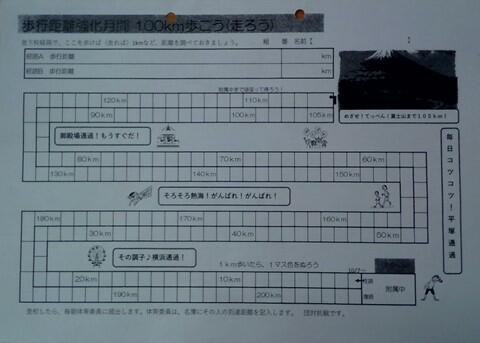 歩行距離強化月間 100km歩こう(走ろう)
登下校経路で、ここを歩けば(走れば)1kmなど、距離を調べておきましょう。 組 番 名前
経路A 歩行距離 km
経路B 歩行距離 km
附属中まで頑張って帰ろう!
120km 110km
90km 100km 105km
めざせ!てっぺん!富士山まで105km!
御殿場通過!もうすぐだ!
毎日コツコツ!平塚通過
80km 70km 60km
130km 140km 150km
そろそろ熱海!がんばれ!がんばれ!
180km 170km 160km
30km 40km 50km
その調子♪横浜通過!
1km歩いたら、1マス色をぬろう
20km 10km
附属中
190km 200km
登校したら、毎朝体育委員に提出します。体育委員は、名簿にその人の到達距離を記入します。 団対抗戦です。